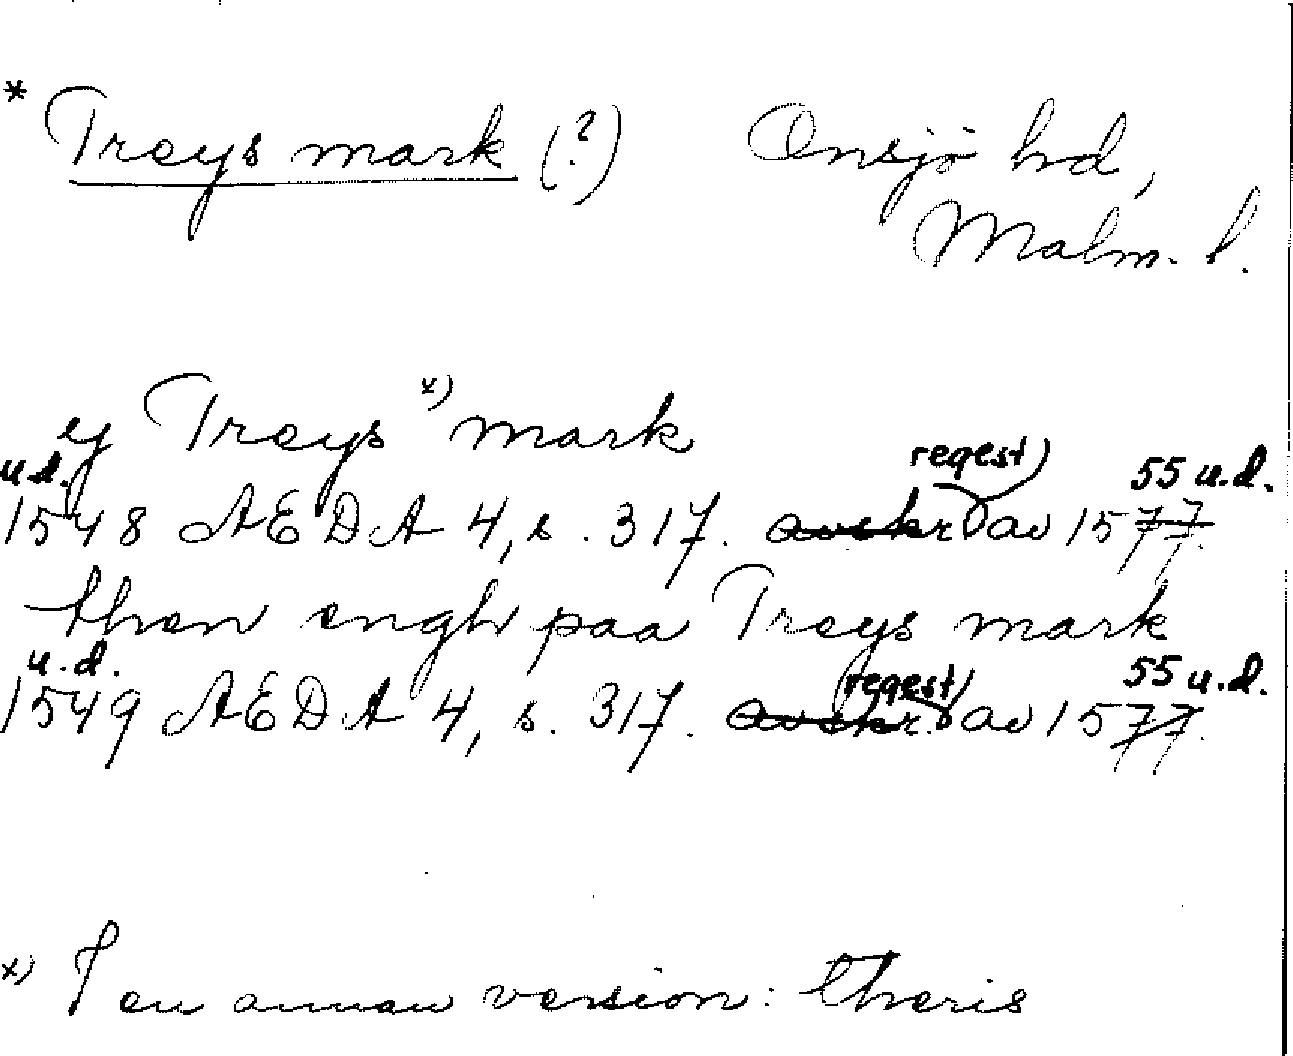 * Treys mark (?) Onsjö hd,
Malm. l.
ej Treys x) mark
u.d. regest) 55 u.d.
1548 AEDA 4, s. 317. avskr av 1577.
then engh paa Treys mark
u.d. regest) 55 u.d.
1549 AEDA 4, s. 317. avskr. av 1577.
x) I en annan version: theris